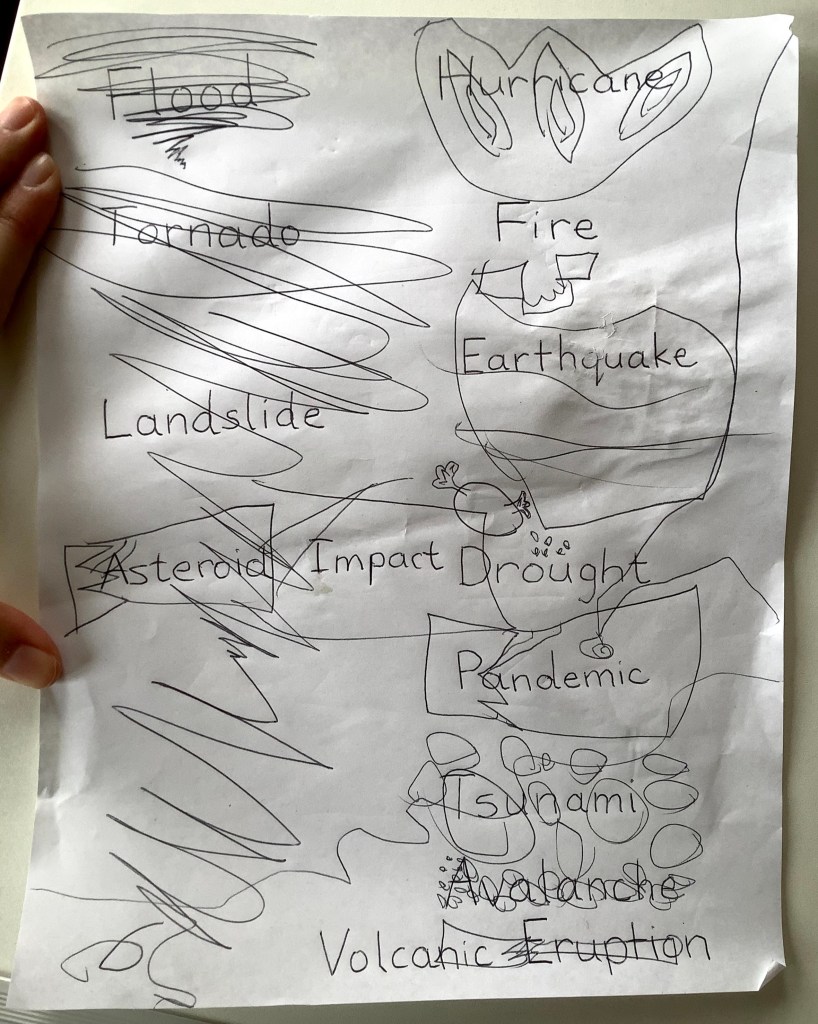 Flood
Hurricane
Tornado
Fire
Earthquake
Landslide
Asteroid Impact
Drought
Pandemic
Tsunami
Avalanche
Volcanic Eruption